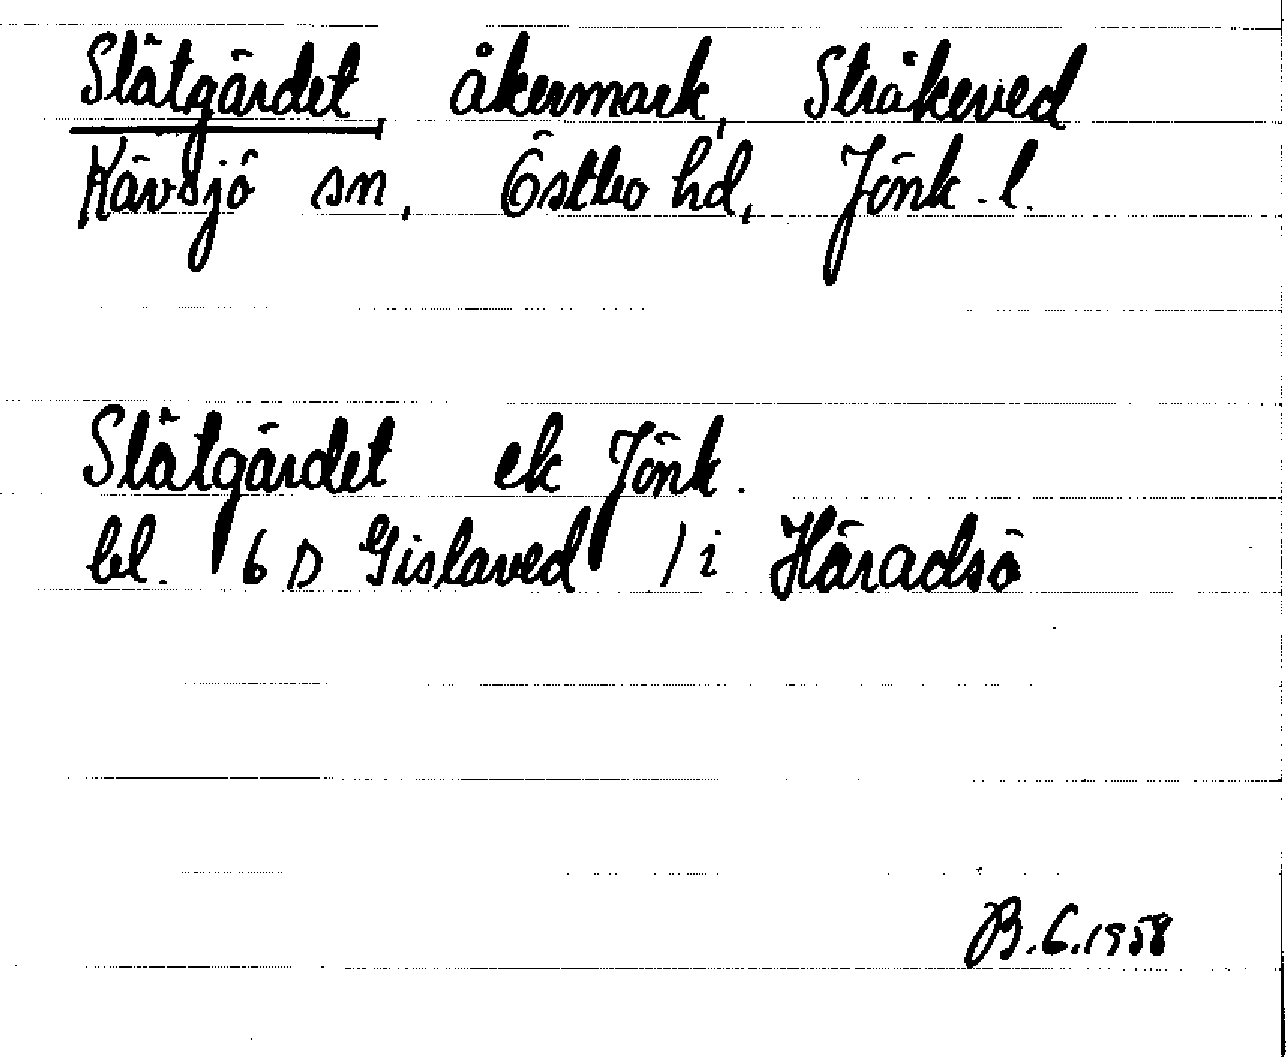 Slätgärdet, åkermark, Stråkeved
Kävsjö sn, Östbo hd, Jönk. l.
Slätgärdet ek Jönk.
bl. 6 D Gislaved / i Häradsö
B.G.1958